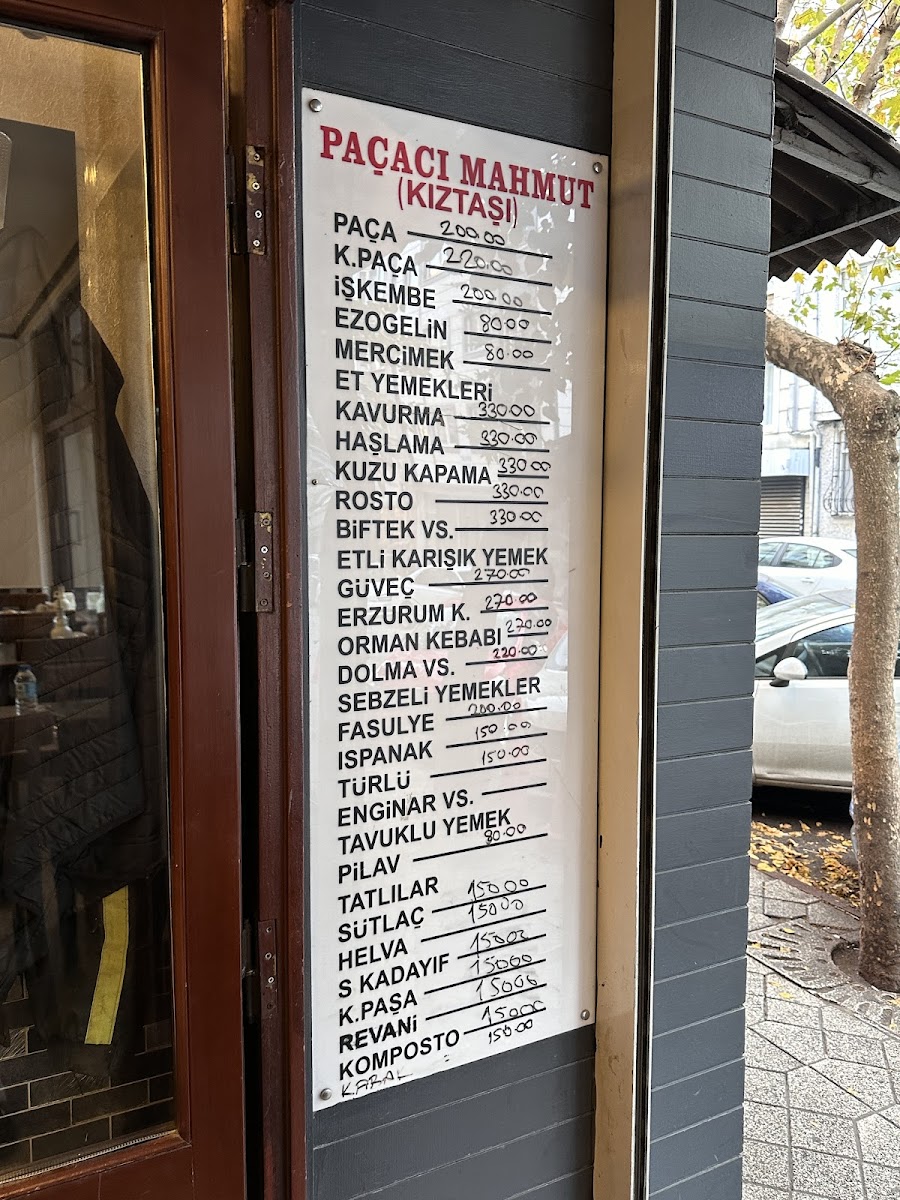 PAÇACI MAHMUT
(KIZTAŞI)
PAÇA 200.00
K.PAÇA 220.00
İŞKEMBE 200.00
EZOGELİN 80.00
MERCİMEK 80.00
ET YEMEKLERİ
KAVURMA 330.00
HAŞLAMA 330.00
KUZU KAPAMA 330.00
ROSTO 330.00
BİFTEK VS. 330.00
ETLİ KARIŞIK YEMEK
GÜVEÇ 270.00
ERZURUM K. 270.00
ORMAN KEBABI 270.00
DOLMA VS. 220.00
SEBZELİ YEMEKLER
FASULYE 200.00
ISPANAK 150.00
TÜRLÜ 150.00
ENGİNAR VS.
TAVUKLU YEMEK
PİLAV 80.00
TATLILAR
SÜTLAÇ 150.00
HELVA 150.00
S KADAYIF 150.00
K.PAŞA 150.00
REVANİ 150.00
KOMPOSTO 150.00
KABAK 150.00